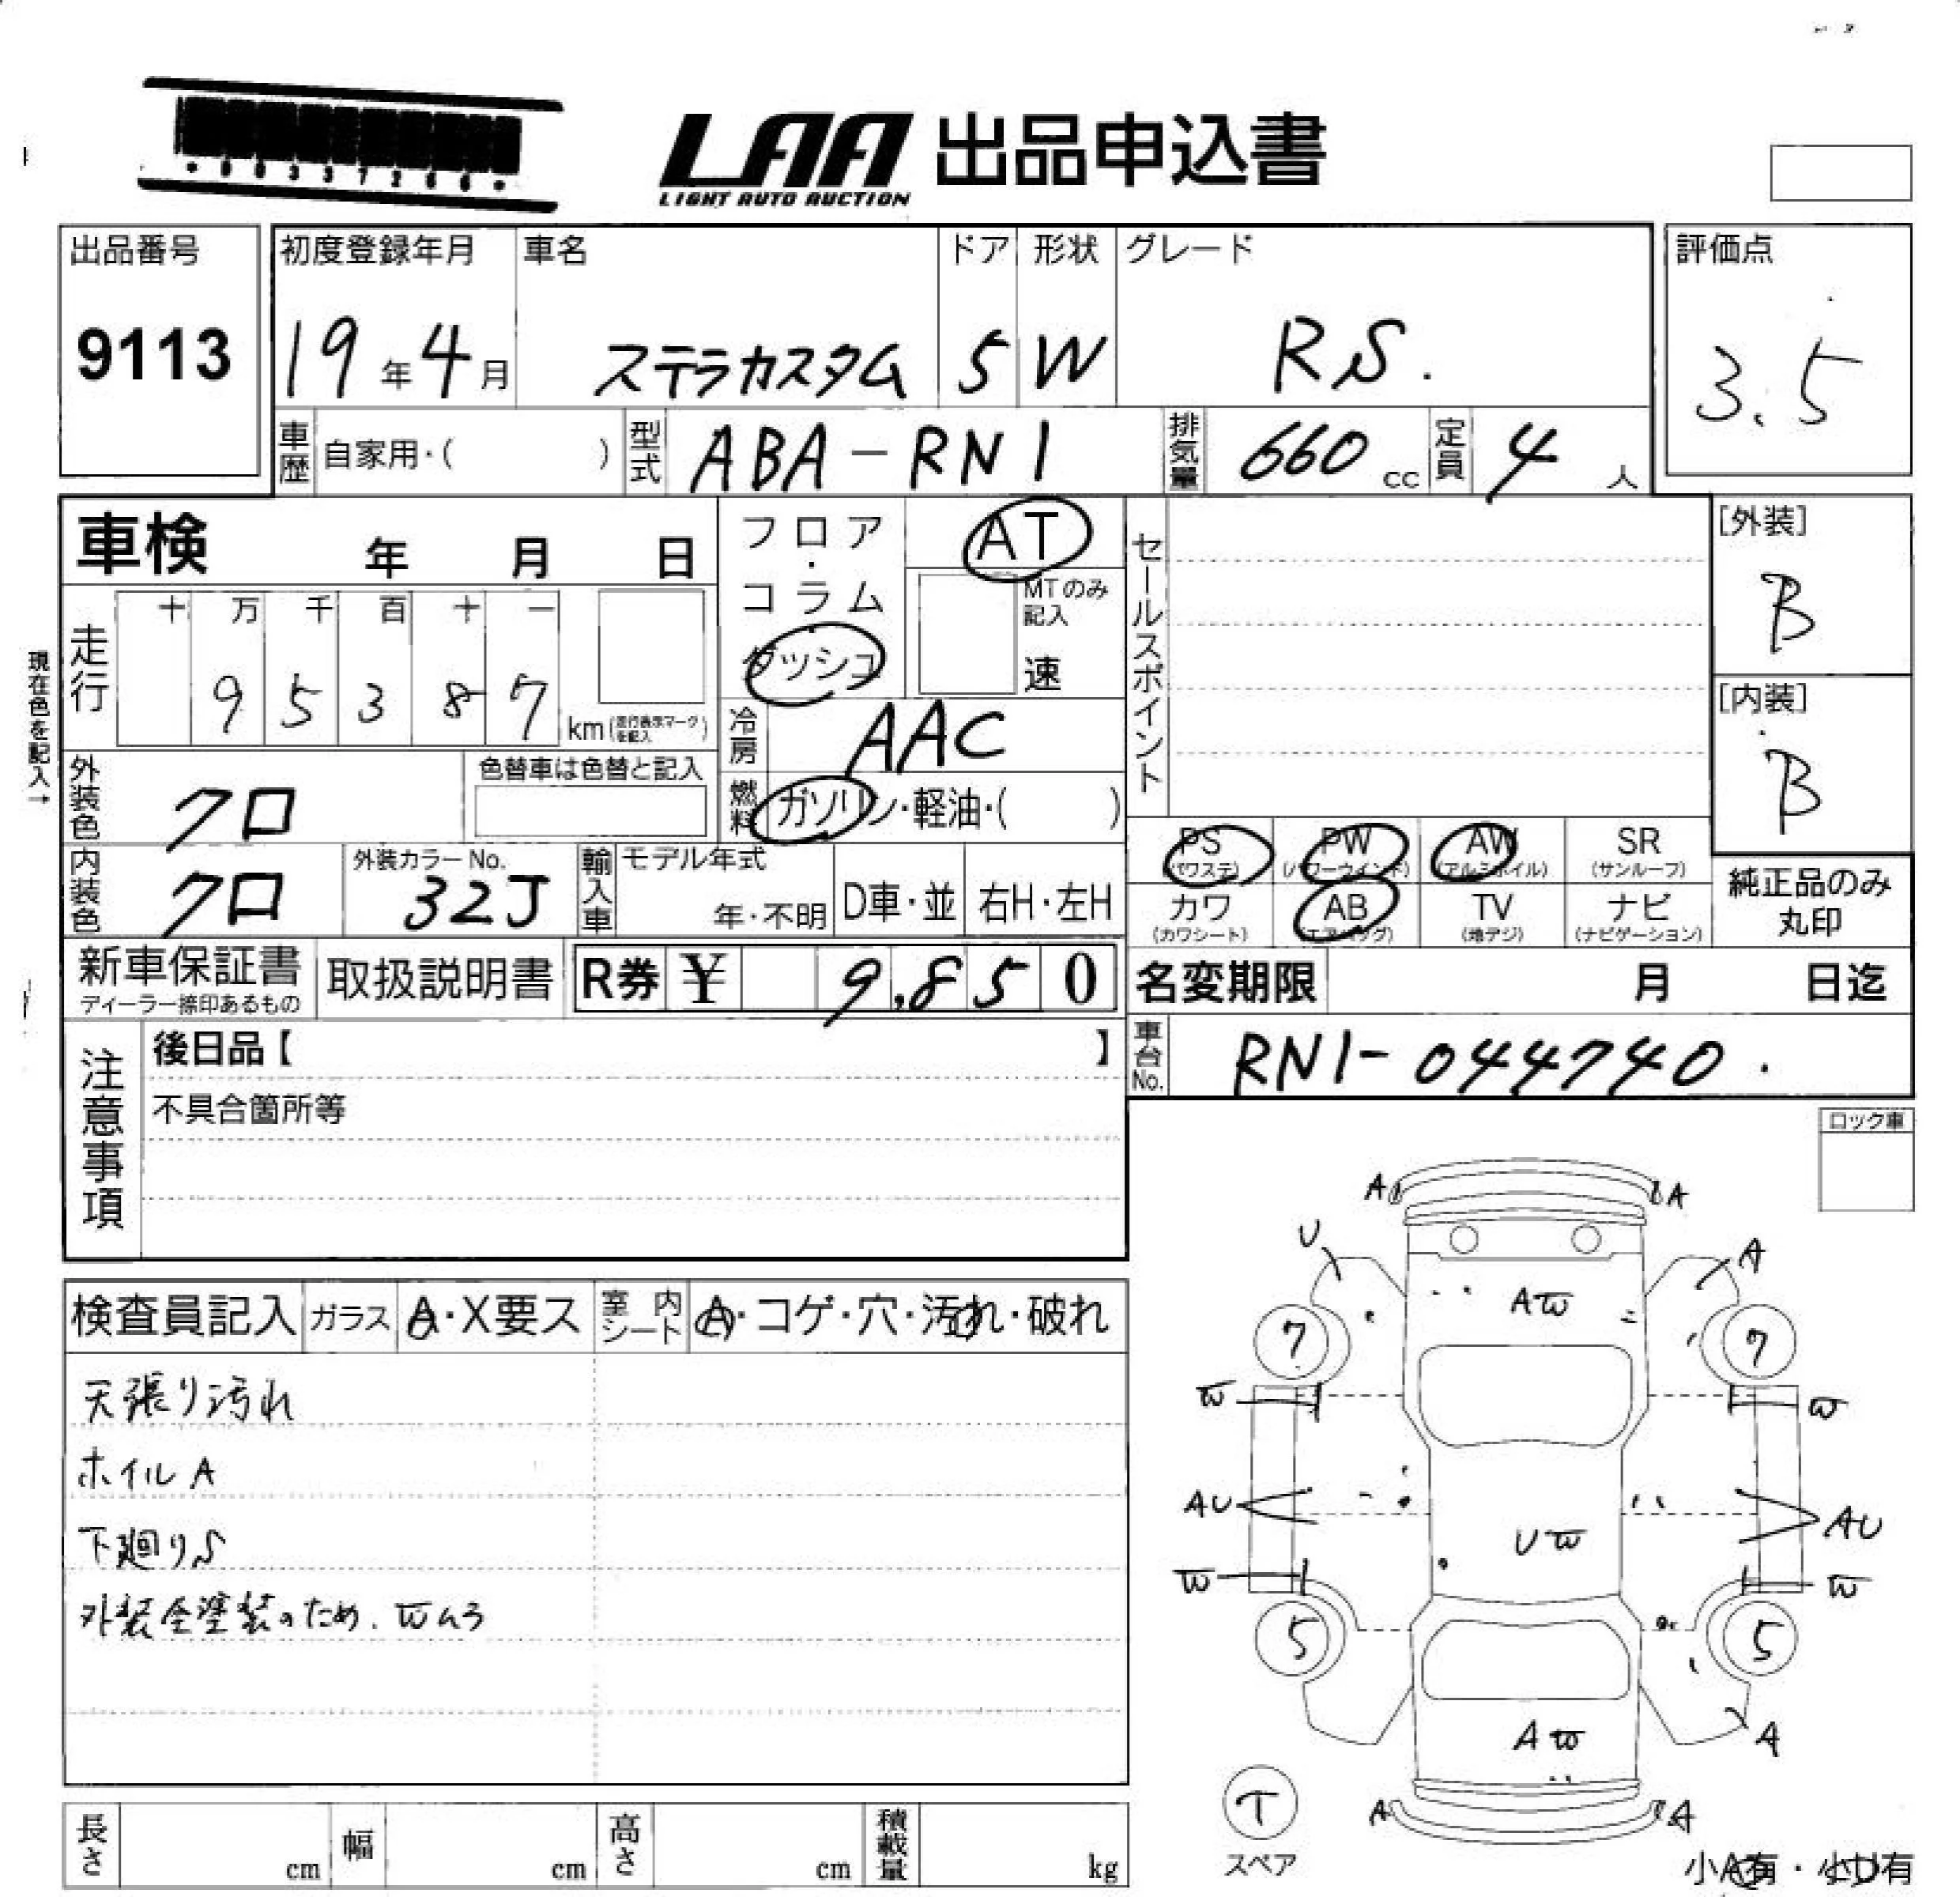 LAA 出品申込書
LIGHT AUTO AUCTION
出品番号
9113
初度登録年月
19年4月
車名
ステラカスタム
ドア
5
形状
W
グレード
RS.
評価点
3.5
車歴 自家用・( )
型式 ABA-RN1
排気量 660 cc
定員 4 人
車検 年 月 日
フロア・コラム
ダッシュ
AT
MTのみ記入
速
セールスポイント
[外装]
B
[内装]
B
現在色を記入→
走行
十 万 千 百 十 一
9 5 3 8 7 km(走行表示マークを記入)
冷房 AAC
燃料 ガソリン・軽油・( )
外装色 クロ
色替車は色替と記入
内装色 クロ
外装カラーNo.
32J
輸入車
モデル年式
年・不明
D車・並
右H・左H
PS (パワステ)
PW (パワーウインド)
AW (アルミホイル)
SR (サンルーフ)
カワ (カワシート)
AB (エアバッグ)
TV (地デジ)
ナビ (ナビゲーション)
純正品のみ丸印
新車保証書
ディーラー捺印あるもの
取扱説明書
R券 ¥ 9,850
名変期限 月 日迄
車台No. RN1-044740.
注意事項
後日品【 】
不具合箇所等
ロック車
検査員記入
ガラス A・X要ス
室内シート A・コゲ・穴・汚れ・破れ
天張り汚れ
ホイルA
下廻りS
外装全塗装のため.Wムラ
A A
U A
AW
7 7
W W
AU AU
UW
W W
5 5
AW A
A A
T
スペア
小A有・小U有
長さ cm
幅 cm
高さ cm
積載量 kg